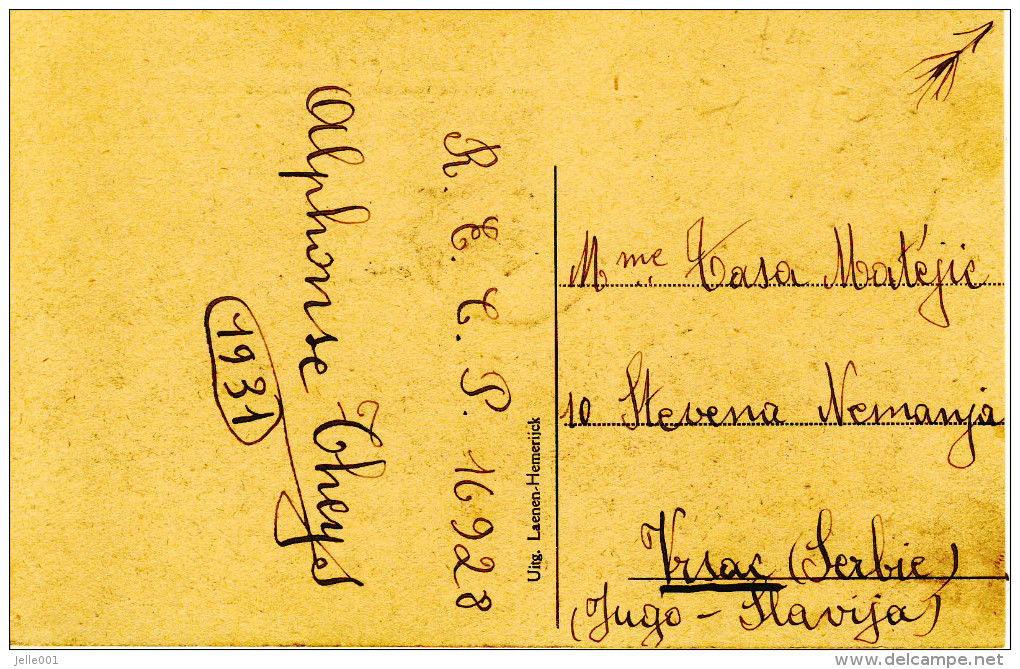 Alphonse Theys
1931
R. E. C. P. 16928
Uitg. Laenen-Hemerijck
Mme. Casa Matéjic
10 Stevena Nemanja
Vrsac (Serbie)
(Jugo-Slavija)
jelle001
www.delcampe.net